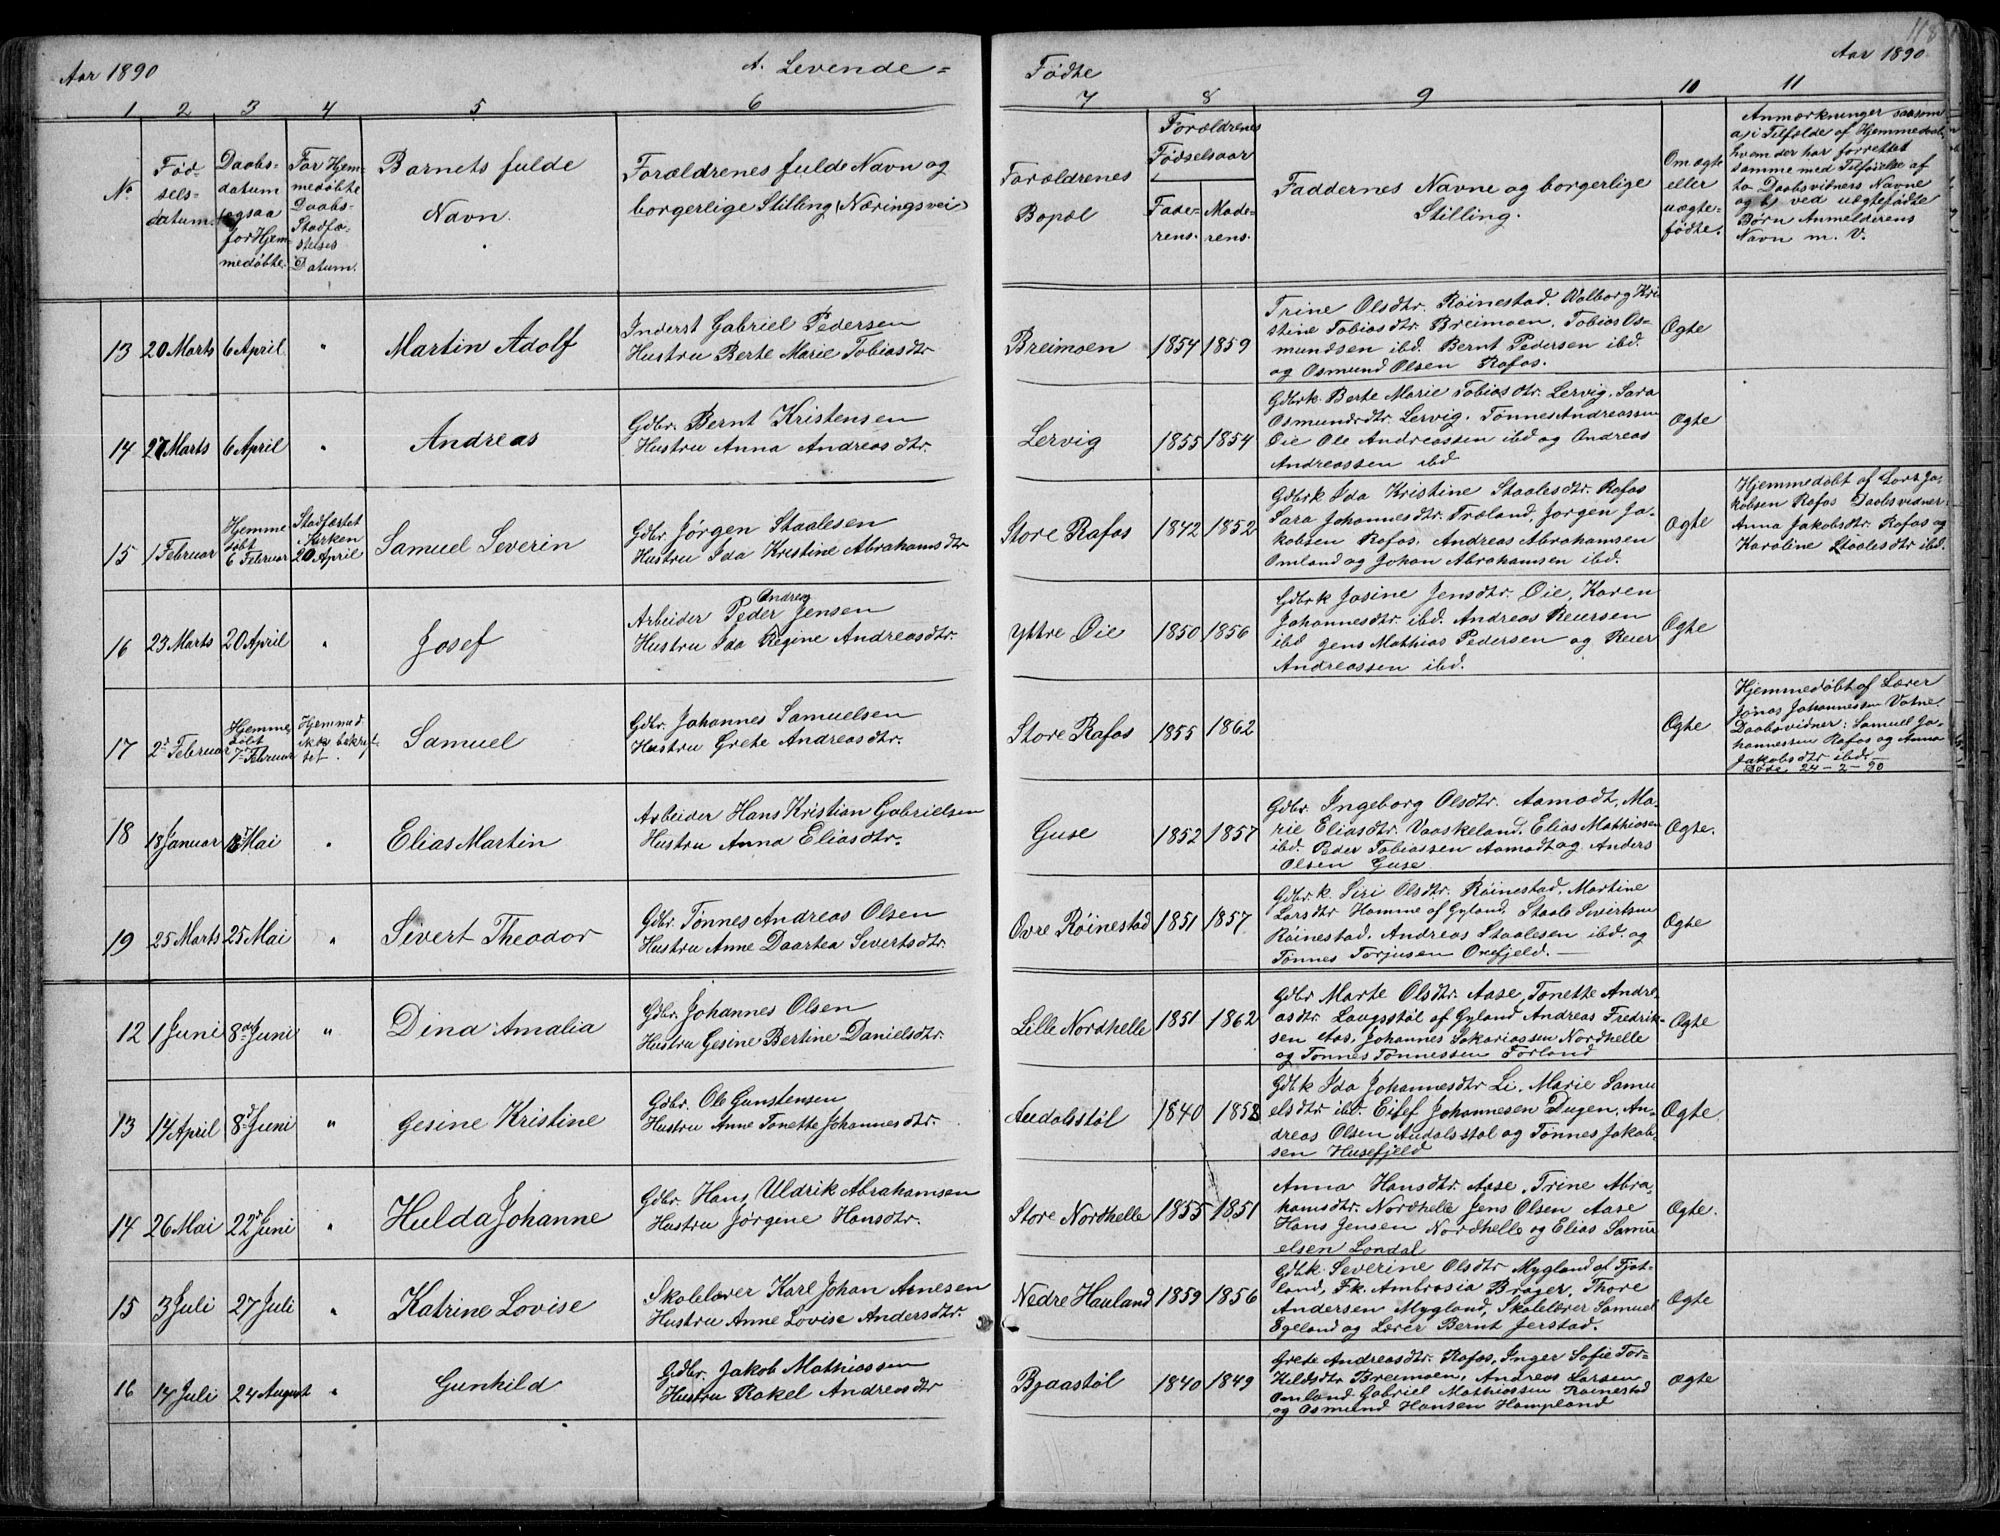 118
Aar 1890
A. Levende=
Fødte
Aar 1890
1 2 3 4 5 6 7 8 9 10 11
No
Fød-
sels-
datum.
Daabs-
datum
(ogsaa
for Hjem-
medøbte.
For Hjem-
medøbte
Daabs-
Stadfæ-
stelses
Datum.
Barnets fulde
Navn.
Forældrenes fulde Navn og
borgerlige Stilling (Næringsvei)
Forældrenes
Bopæl
Forældrenes
Fødselsaar
Fade-
rens.
Mode-
rens.
Faddernes Navne og borgerlige
Stilling.
Om ægte
eller
uægte-
fødte.
Anmærkninger saasom
a) i Tilfælde af Hjemmedaab,
hvem der har forrettet
samme med Tilføielse af
to Daabsvidners Navne
og b) ved uægtefødte
Børn Anmelderens
Navn m. V.
13 20 Marts 6 April " Martin Adolf
Inderst Gabriel Pedersen
Hustru Berte Marie Tobiasdtr
Breimoen 1854 1859
Trine Olsdtr. Røinestad. Valborg Kri-
stine Tobiasdtr. Breimoen. Tobias Os-
mundsen ibd. Bernt Pedersen ibd.
og Osmund Olsen Rafos.
Ægte
14 27 Marts 6 April " Andreas
Gdbr. Bernt Kristensen
Hustru Anna Andreasdtr.
Lervig 1855 1854
Gdbrk. Berte Marie Tobiasdtr. Lervig. Sara
Osmundsdtr. Lervig. Tønnes Andreassen
Øie Ole Andreassen ibd og Andreas
Andreassen ibd
Ægte
15 1 Februar
Hjemme
døbt
6 Februar
Stadfæstet
i Kirken
20 April
Samuel Severin
Gdbr. Jørgen Staalesen
Hustru Ida Kristine Abrahamsdtr
Store Rafos 1842 1852
Gdbrk Ida Kristine Staalesdtr. Rafos
Sara Johannesdtr. Træland, Jørgen Ja-
kobsen Rafos. Andreas Abrahamsen
Omland og Johan Abrahamsen ibd.
Ægte
Hjemmedøbt af Lars Ja-
kobsen Rafos Daabsvidner:
Anna Jakobsdtr. Rafos og
Karoline Staalesdtr ibd.
16 23 Marts 20 April " Josef
Andreas
Arbeider Peder Jensen
Hustru Ida Regine Andreasdtr.
Yttre Øie 1850 1856
Gdbrk Josine Jensdtr. Øie, Karen
Johannesdtr. ibd. Andreas Reiersen
ibd Jens Mathias Pedersen og Reier
Andreassen ibd.
Ægte
17 2 Februar
Hjemme
døbt
7 Februar
Hjemmed
ikke bekræf-
tet.
Samuel
Gdbr. Johannes Samuelsen
Hustru Grete Andreasdtr.
Store Rafos 1855 1862
Ægte
Hjemmedøbt af Lærer
Jonas Johannessen Vatne.
Daabsvidner: Samuel Jo-
hannessen Rafos og Anna
Jakobsdtr ibd.
Døde 24-2-90
18 18 Januar Mai " Elias Martin
Arbeider Hans Kristian Gabrielsen
Hustru Anna Eliasdtr.
Guse 1852 1857
Gdbr. Ingeborg Olsdtr. Aamodt, Ma-
rie Eliasdtr. Vaaskeland. Elias Mathiasen
ibd. Peder Tobiassen Aamodt og Anders
Olsen Guse
Ægte.
19 25 Marts 25 Mai " Severt Theodor
Gdbr. Tønnes Andreas Olsen
Hustru Anne Daartea Severtsdtr.
Øvre Røinestad 1851 1857.
Gdbr. k. Siri Olsdtr. Røinestad, Martine
Larsdtr Homme af Gyland, Staale Sivertsen
Røinestad. Andreas Staalesen ibd. og
Tønnes Torjusen Orefjeld.
Ægte
12 1 Juni 8de Juni " Dina Amalia
Gdbr. Johannes Olsen
Hustru Gesine Bertine Danielsdtr.
Lille Nordhelle 1851 1862
Gdbr Marte Olsdtr. Aase, Tonette Andre-
asdtr. Laugsstøl af Gyland Andreas Fredrik-
sen Aas, Johannes Sakariassen Nordhelle
og Tønnes Tønnessen Forland
Ægte
13 14 April 8 Juni " Gesine Kristine
Gdbr. Ole Gunstensen
Hustru Anne Tonette Johannesdtr.
Audalsstøl 1840 1852
Gdbk Ida Johannesdtr Li. Marie Samu
elsdtr ibd. Eilef Johannesen Dugen. An-
dreas Olsen Audalsstøl og Tønnes Jakob-
sen Husefjeld
Ægte.
14 26 Mai 22 Juni " Hulda Johanne
Gdbr. Hans Uldrik Abrahamsen
Hustru Jørgine Hansdtr.
Store Nordhelle 1855 1851
Anna Hansdtr. Aase. Trine Abra-
hamsdtr. Nordhelle Jens Olsen Aase
Hans Jensen Nordhelle og Elias Samu
elsen Londal
Ægte.
15 3 Juli 27 Juli " Katrine Lovise
Skolelærer Karl Johan Arnesen
Hustru Anne Lovise Andersdtr.
Nedre Hauland 1859 1856
Gdbk. Severine Olsdtr Mygland af Fjot-
land, Fk. Ambrosia Brager, Thore
Andersen Mygland, Skolelærer Samuel
Egeland og Lærer Bernt Jerstad.
Ægte
16 14 Juli 24 August " Gunhild
Gdbr. Jakob Mathiassen
Hustru Rakel Andreasdtr
Bjaastøl 1840 1849
Grete Andreasdtr. Rafos, Inger Sofie Tor-
kildsdtr Breimoen, Andreas Larsen
Omland Gabriel Mathiassen Røinestad
og Osmund Hansen Hompland
Ægte